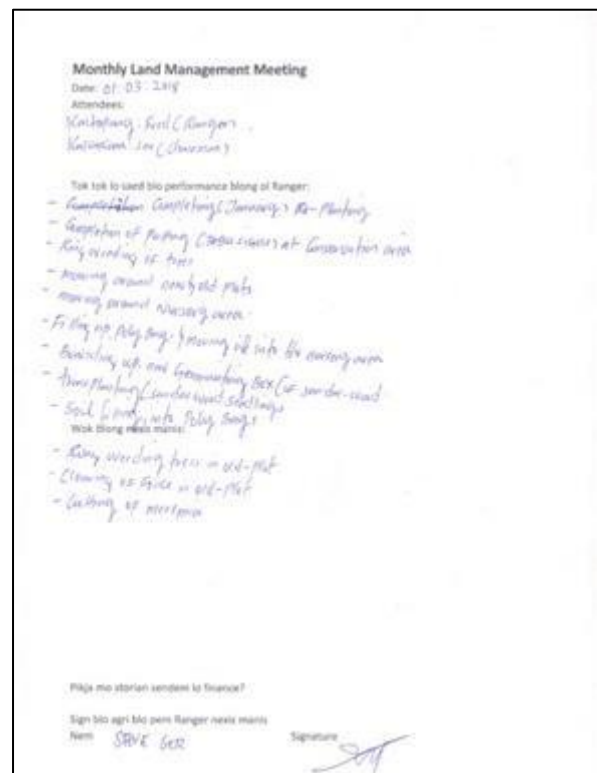 Monthly Land Management Meeting
Date: 01.03.2018
Attendees:
(Ranger)
Tok tok lo saed blo performance blong ol Ranger:
- Completing (January) Re-Planting
- Completion of at Conservation area
- Ring weeding of trees
- mowing around old plots
- mowing around Nursery area
- Filling up Poly Bags & moving it into the nursery area
- up and Germinating Box (of sander-wood
- transplanting (sanderwood seedlings
- Soil into Poly Bags
Wok blong nexis manis:
- Ring weeding trees in old-plot
- Clearing of in old-plot
- Cutting of merimia
Pikja mo storian sendem lo finance?
Sign blo agri blo pem Ranger nexis manis
Nem
Signature